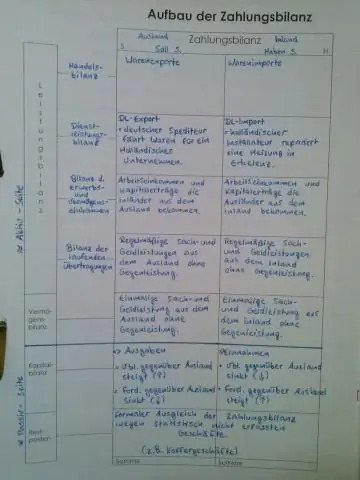 Aufbau der Zahlungsbilanz
Ausland Zahlungsbilanz Inland
S Soll S. Haben S. H
Leistungsbilanz
Handels-
bilanz
Warenexporte
Warenimporte
Dienst-
leistungs-
bilanz
DL-Export
• deutscher Spediteur
fährt Waren für ein
Holländisches
Unternehmen.
DL-Import
• holländischer
Installateur repariert
eine Heizung in
Erkelenz.
Bilanz d.
Erwerbs-
und
Vermögens-
einkommen
Arbeitseinkommen und
Kapitalerträge die
Inländer aus dem
Ausland bekommen.
Arbeitseinkommen und
Kapitalerträge die
Ausländer aus dem
Inland bekommen.
Bilanz der
laufenden
Übertragungen
Regelmäßige Sach- und
Geldleistungen aus
dem Ausland ohne
Gegenleistung.
Regelmäßige Sach-
und Geldleistungen
aus dem Inland
ohne Gegenleistung.
Vermö-
gens-
bilanz
Einmalige Sach- und
Geldleistung aus dem
Ausland ohne
Gegenleistung.
Einmalige Sach-
und Geldleistung aus
dem Inland ohne
Gegenleistung.
Aktiv - Seite
Kapital-
bilanz
=> Ausgaben
• Vbl. gegenüber Ausland
steigt (↑)
• Ford. gegenüber Ausland
sinkt (↓)
Einnahmen
• Vbl. gegenüber Ausland
sinkt (↓)
• Ford. gegenüber Ausland
steigt (↑)
Passiv - Seite
Rest-
posten
Formaler Ausgleich der Zahlungsbilanz
wegen statistisch nicht erfassten
Geschäfte.
(z.B. Koffergeschäfte)
Summe
Summe